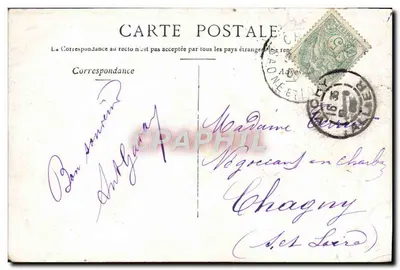 CARTE POSTALE
La Correspondance au recto n'est pas acceptée par tous les pays étrangers
Correspondance
Bon souvenir
Madame
Négociant en charbon
Chagny
(S. et Loire)
VICHY
ALLIER
SAONE ET L
CPAPHIL